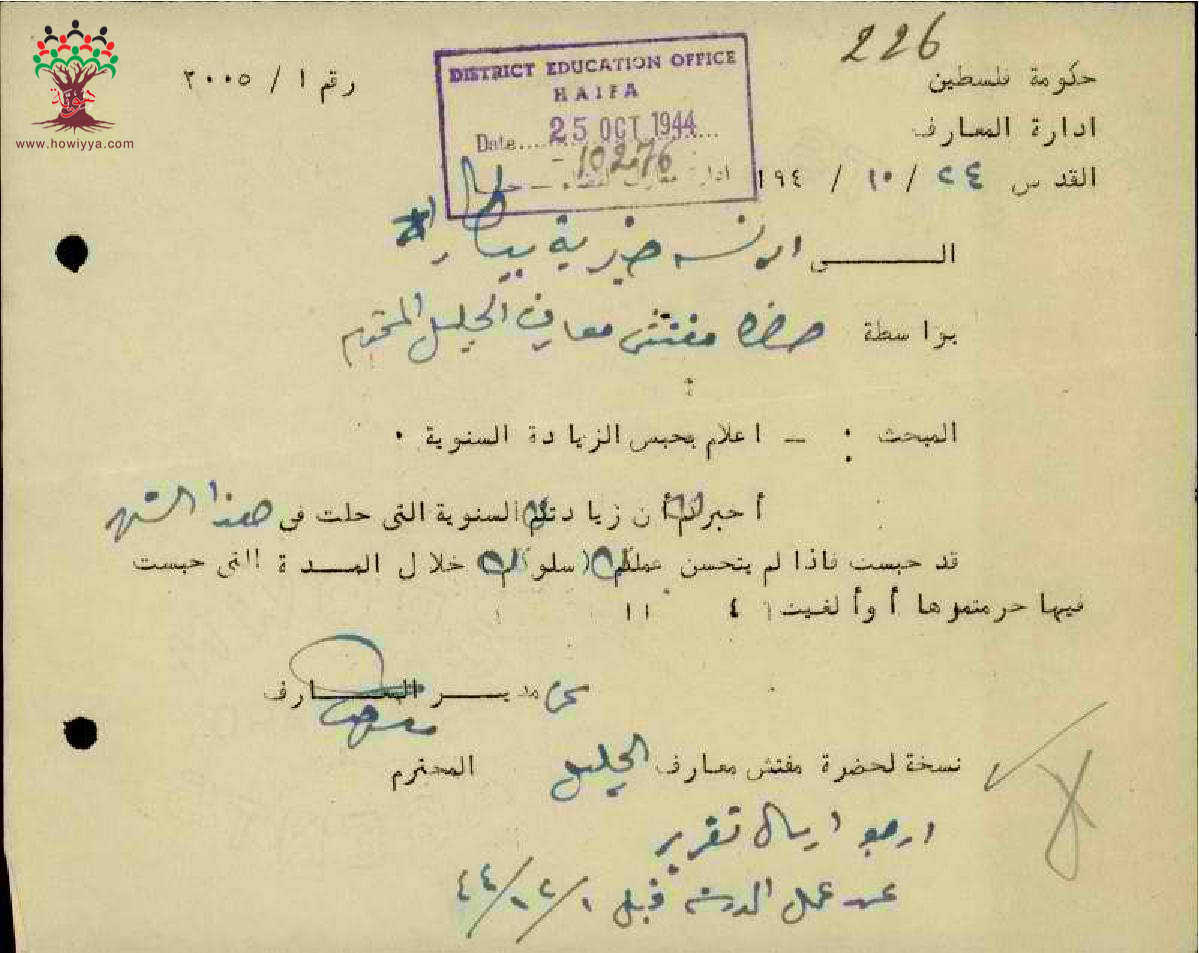 226
حكومة فلسطين
رقم ١ / ٢٠٠٥
ادارة المعارف
القدس ٢٤ / ١٠ / ١٩٤
DISTRICT EDUCATION OFFICE
HAIFA
Date.... 25 OCT 1944....
10276
هوية
www.howiyya.com
الـــى الآنسه خيرية بيطار
بواسطة حضرة مفتش معارف الجليل المحترم
المبحث : – اعلام بحبس الزيادة السنوية .
أخبرك أن زيادتك السنوية التى حلت فى هذا الشهر
قد حبست فاذا لم يتحسن عملك (سلوكك) خلال المــدة التى حبست
فيها حرمتموها أو ألغيت
عن مديــر المعــارف
نسخة لحضرة مفتش معارف الجليل المحترم
ارجو ارسال تقرير
عن عمل الآنسه قبل ١/١٢/٤٤